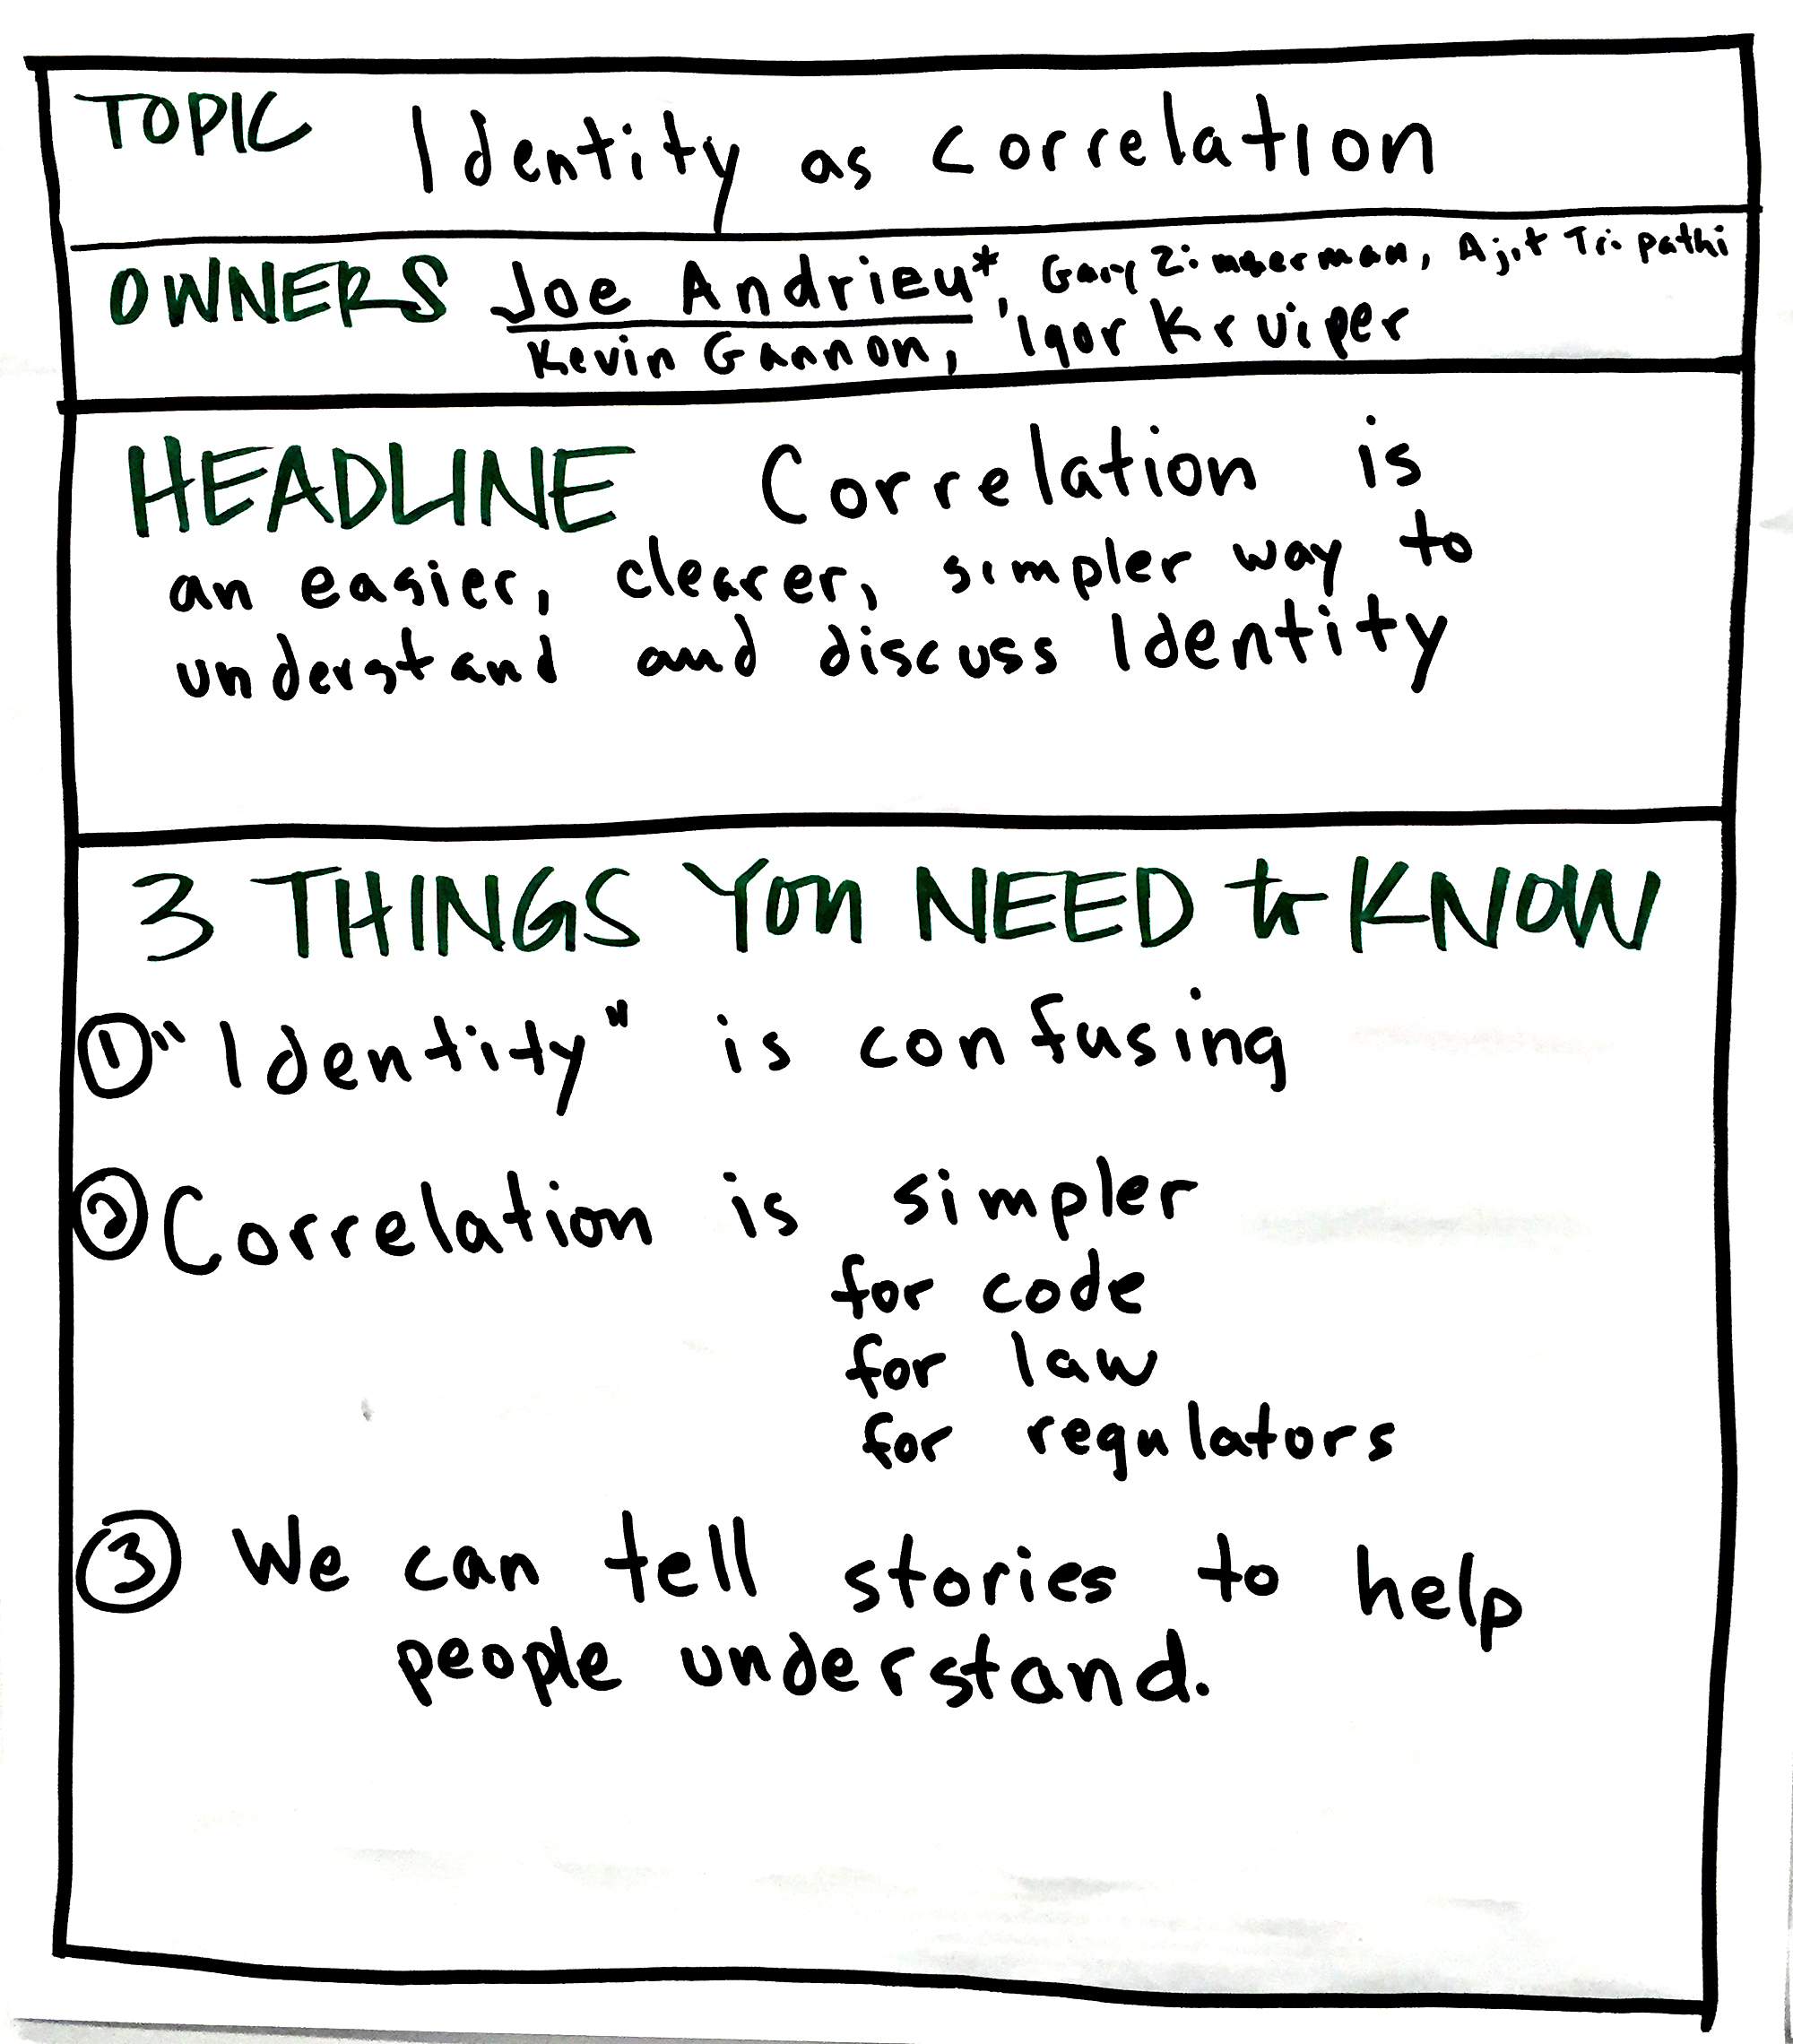 TOPIC Identity as correlation
OWNERS Joe Andrieu*, Gary Zimmerman, Ajit Tripathi
Kevin Gannon, Igor Kruiper
HEADLINE Correlation is
an easier, clearer, simpler way to
understand and discuss Identity
3 THINGS YOU NEED to KNOW
① "Identity" is confusing
② Correlation is simpler
for code
for law
for regulators
③ We can tell stories to help
people understand.